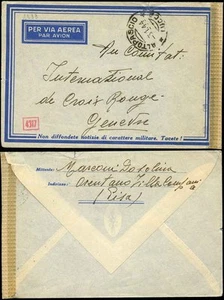 PER VIA AEREA
PAR AVION
ALTOPASCIO
Au Comitat
International
de Croix Rouge
Genève
Non diffondete notizie di carattere militare. Tacete!
Mittente: Marconi Isolina
Indirizzo:
(Pisa)